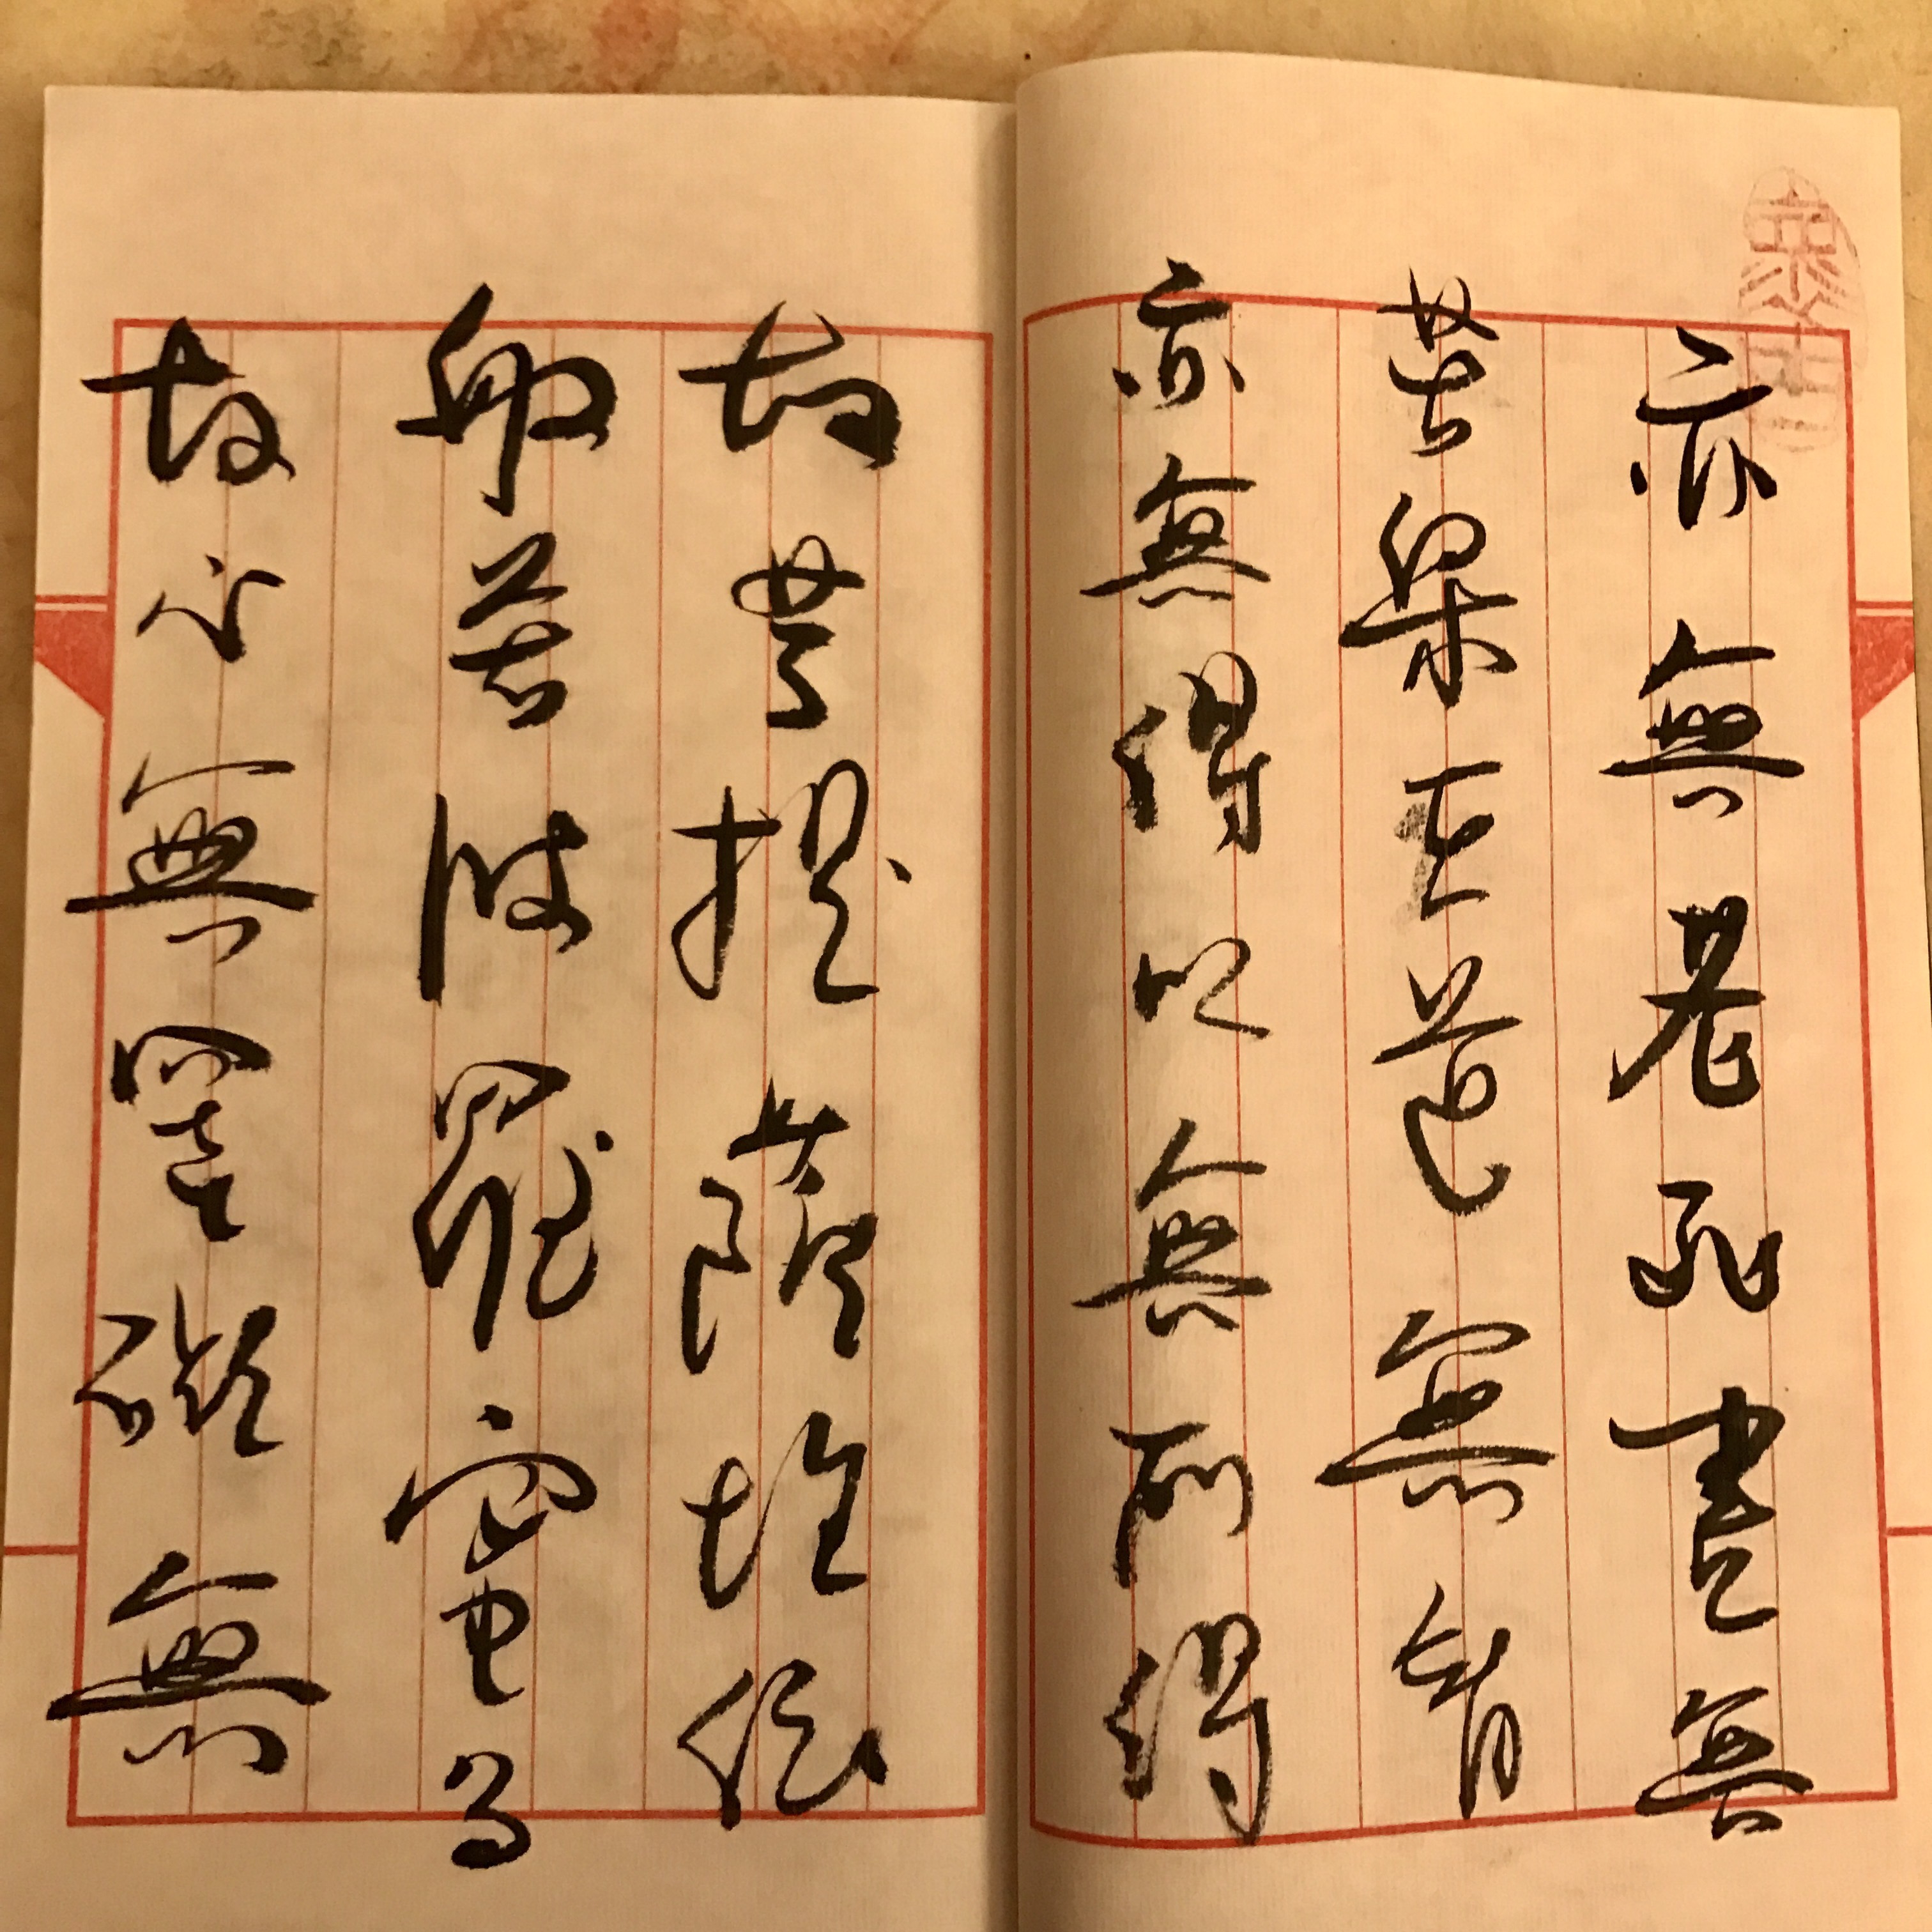 亦無老死盡無
苦集滅道無智
亦無得以無所得
故菩提薩埵依
般若波羅蜜多
故心無罣礙無